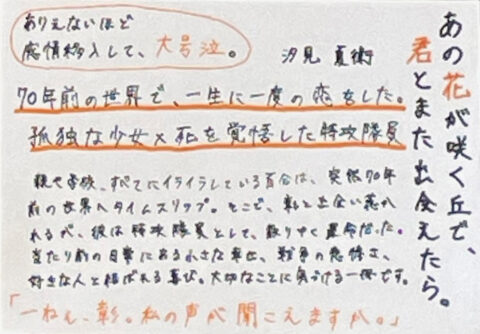 あの花が咲く丘で、
君とまた出会えたら。
汐見 夏衛
ありえないほど
感情移入して、大号泣。
70年前の世界で、一生に一度の恋をした。
孤独な少女×死を覚悟した特攻隊員
親や学校、すべてにイライラしている百合は、突然70年
前の世界へタイムスリップ。そこで、彰と出会い惹か
れるが、彼は特攻隊員として、散りゆく運命だった。
当たり前の日常にある小さな幸せ、戦争の悲惨さ、
好きな人と結ばれる喜び。大切なことに気づける一冊です。
「ーねぇ、彰。私の声が聞こえますか。」